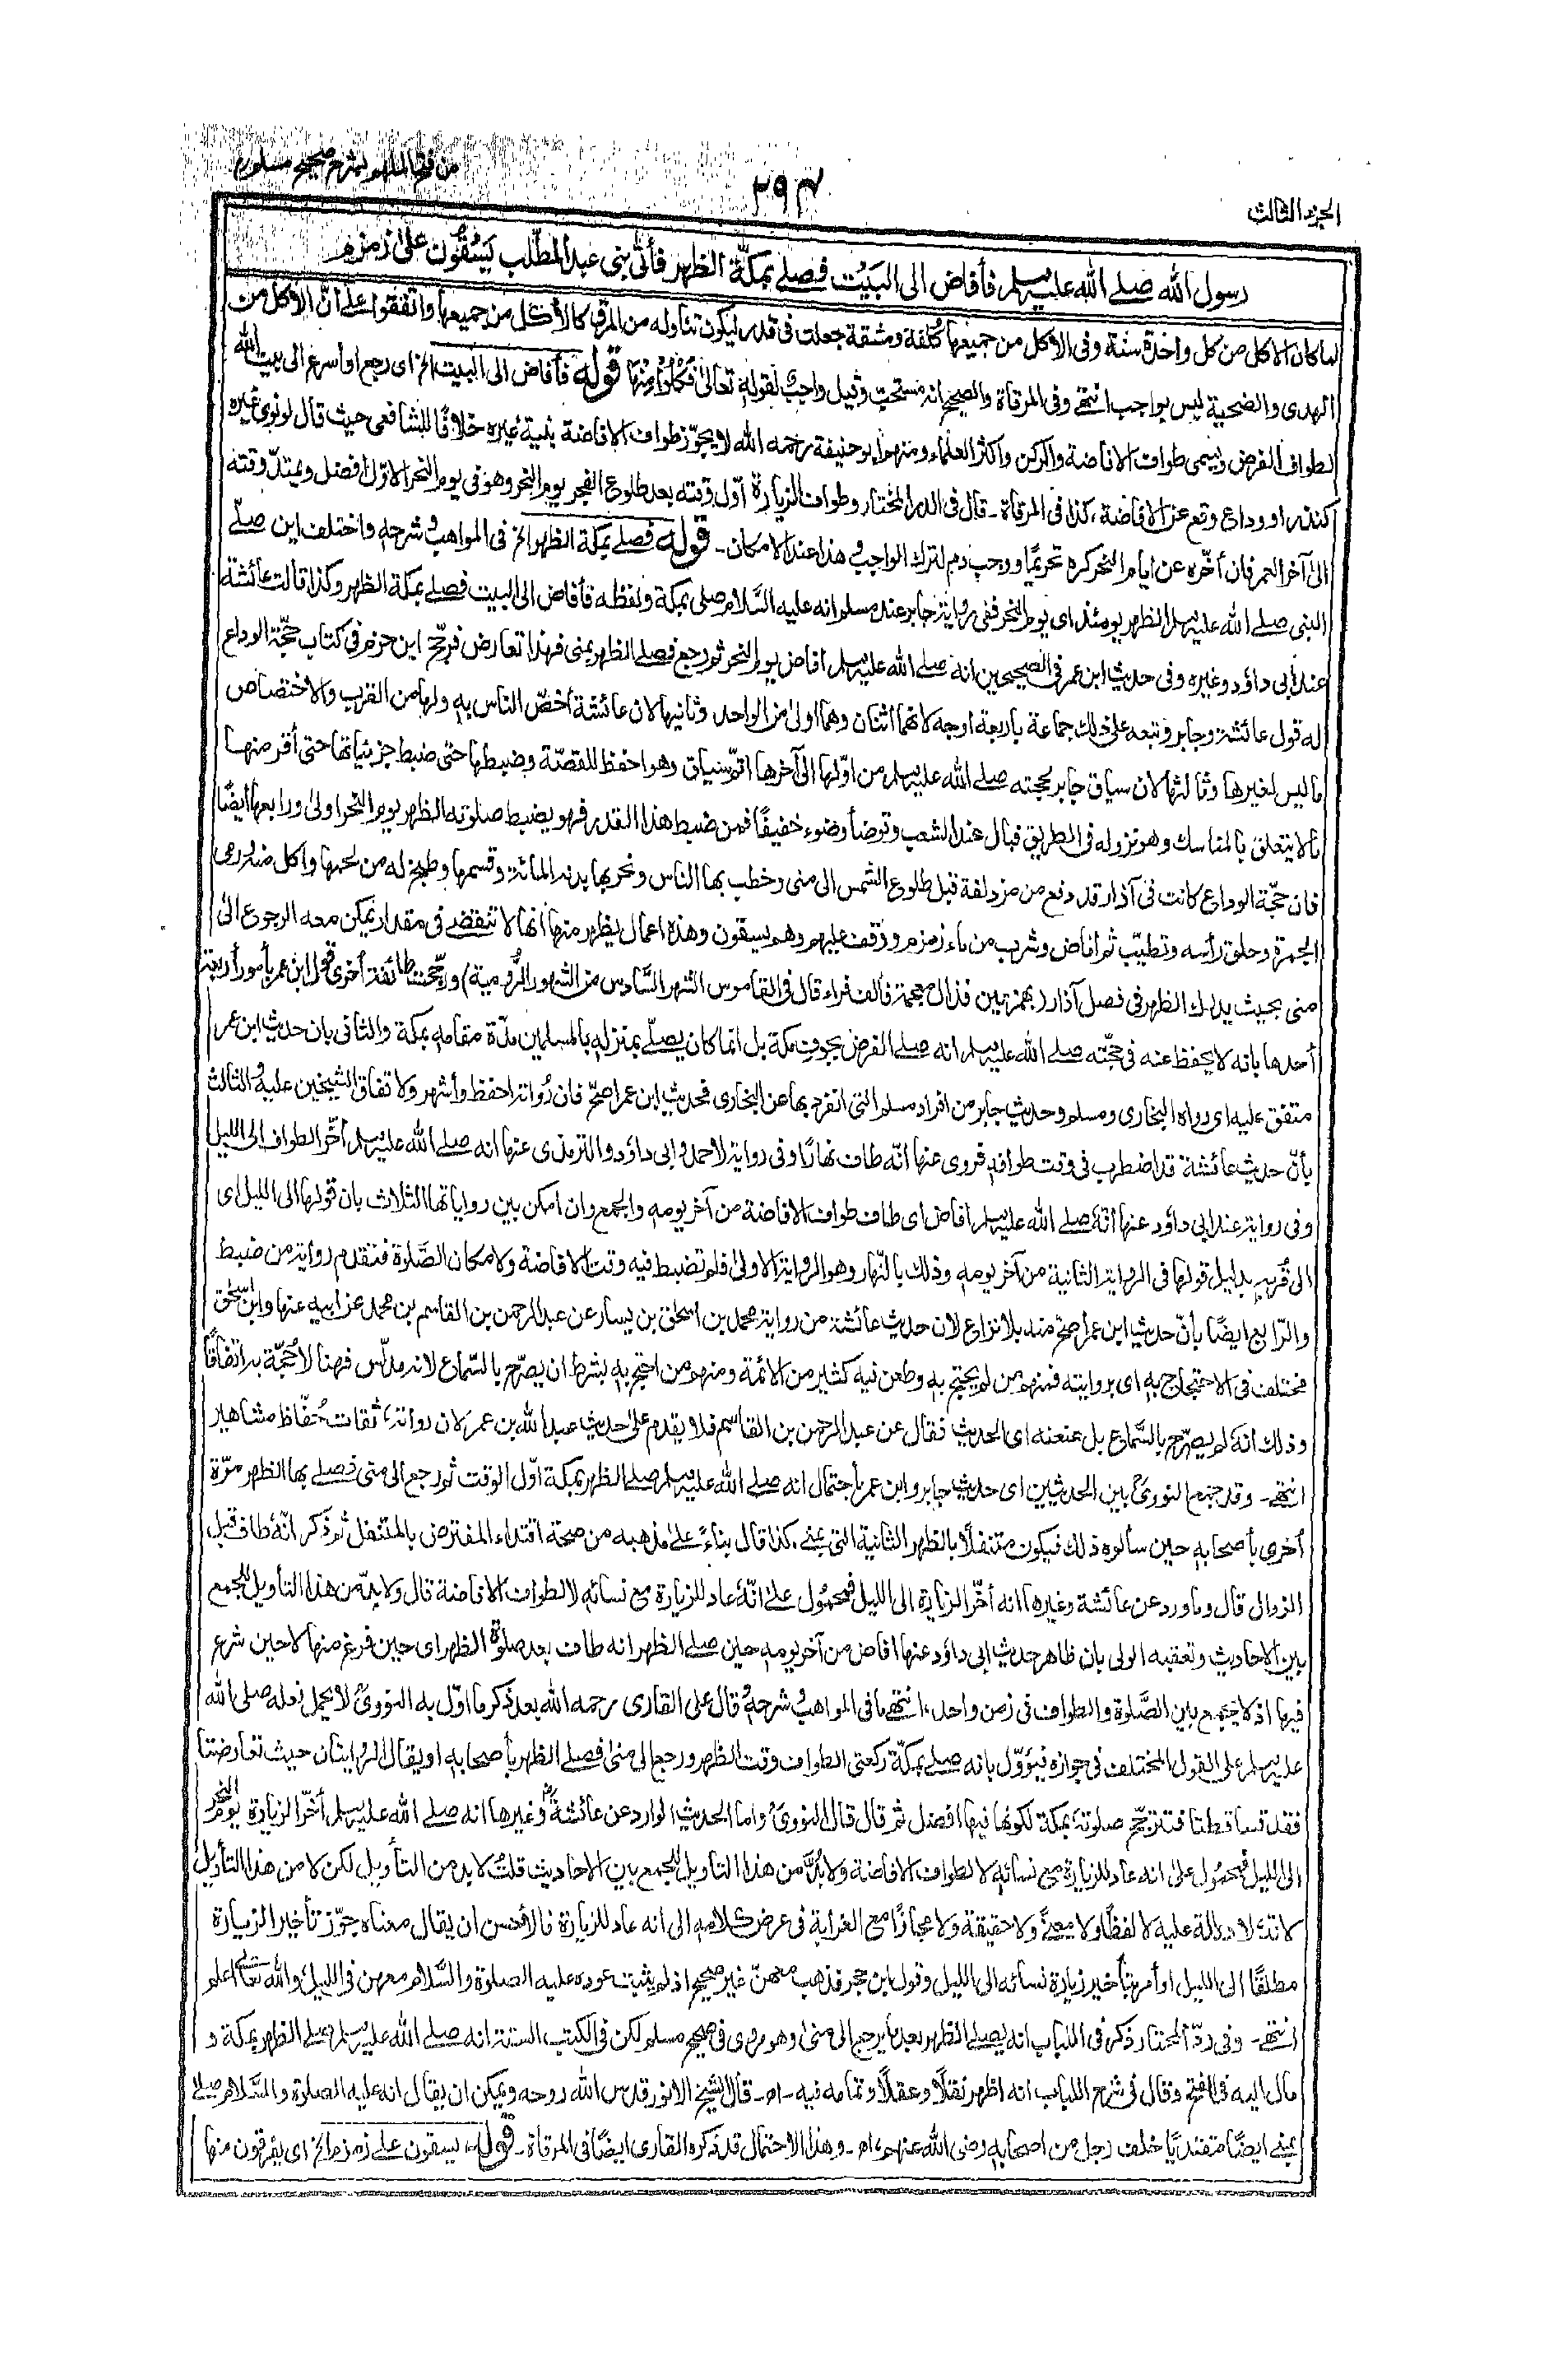 الجزء الثالث
٢٩٣
من فتح الملهم بشرح صحيح مسلم
رسول الله صلے الله عليہ وسلم فأفاض الى البَيْت فصلے بمكّة الظهر فأتى بنى عبد المطّلب يَسْقُوْن علىٰ زمزم
لما كان الاكل من كل واحدة سنة وفى الاكل من جميعها كُلفة ومشقة جعلت فى قدر ليكون تناوله من المرق كالأكل من جميعها واتفقوا على انّ الاكل من
الهدى والضحية ليس بواجب انتهٰے وفى المرقاة والصحيح انه مستحبّ وقيل واجبٌ لقوله تعالىٰ فَكُلُوْا مِنْهَا قوله فأفاض الى البيت الخ اى رجع او أسرع الى بيت الله
لطواف الفرض ويسمى طواف الافاضة والركن واكثر العلماء ومنهم ابو حنيفة رحمه الله لا يجوّز طواف الافاضة بنية غيره خلافًا للشافعى حيث قال لو نوى غيره
كنذر او وداع وقع عن الافاضة ، كذا فى المرقاة - قال فى الدر المختار وطواف الزيارة اوّل وقته بعد طلوع الفجر يوم النحر وهو فى يوم النحر الاوّل افضل ويمتدّ وقته
الىٰ آخر العمر فان أخّره عن ايام النحر كره تحريمًا ووجب دم لترك الواجب وهذا عند الامكان - قوله فصلے بمكة الظهر الخ فى المواهب وشرحه واختلف اين صلّے
النبى صلے الله عليہ وسلم الظهر يومئذ اى يوم النحر ففى رواية جابر عند مسلم انه عليه السّلام صلى بمكة ولفظه فأفاض الى البيت فصلے بمكة الظهر وكذا قالت عائشة
عند ابى داؤد وغيره وفى حديث ابن عمر فى الصحيحين انه صلے الله عليہ وسلم افاض يوم النحر ثم رجع فصلے الظهر بمنى فهذا تعارض فرجّح ابن حزم فى كتاب حجّة الوداع
له قول عائشة وجابر وتبعه على ذلك جماعة باربعة اوجه لانهما اثنان وهما اولىٰ من الواحد وثانيها لان عائشة أخصّ الناس به ولها من القرب والاختصاص
ما ليس لغيرها وثالثها لان سياق جابر لحجته صلے الله عليہ وسلم من اوّلها الى آخرها اتمّ سياق وهو احفظ للقصّة وضبطها حتى ضبط جزئياتها حتى أقر منها
ما لا يتعلق بالمناسك وهو نزوله فى الطريق فبال عند الشعب وتوضأ وضوء خفيفًا فمن ضبط هذا القدر فهو يضبط صلوته الظهر يوم النحر اولىٰ ورابعها ايضًا
فان حجّة الوداع كانت فى آذار قد دفع من مزدلفة قبل طلوع الشمس الى منى وخطب بها الناس ونحر بها بدنه المائة وقسمها وطبخ له من لحمها واكل منه ورمى
الجمرة وحلق رأسه وتطيّب ثم أفاض وشرب من ماء زمزم ووقف عليهم وهم يسقون وهذه اعمال يظهر منها انها لا تنقضے فى مقدار يمكن معه الرجوع الىٰ
منى بحيث يدرك الظهر فى فصل آذار (بهمزتين فذال معجمة فألف فراء قال فى القاموس الشهر السَّادس من الشهور الرُّومية) ورجّحت طائفة أخرى قول ابن عمر بأمور أربعة
أحدها بانه لا يحفظ عنه فى حجّته صلے الله عليہ وسلم انه صلے الفرض بجوف مكة بل انما كان يصلّے بمنزله بالمسلمين مدّة مقامه بمكة والثانى بان حديث ابن عمر
متفق عليه اى رواه البخارى ومسلم وحديث جابر من افراد مسلم التى انفرد بها عن البخارى فحديث ابن عمر اصحّ فان رُواته احفظ وأشهر ولاتفاق الشيخين عليه والثالث
بأنّ حديث عائشة قد اضطرب فى وقت طوافه فروى عنها انّه طاف نهارًا وفى رواية لاحمد وابى داؤد والترمذى عنها انه صلے الله عليہ وسلم أخّر الطواف الى الليل
وفى رواية عند ابى داؤد عنها انّهٗ صلے الله عليہ وسلم افاض اى طاف طواف الافاضة من آخر يومه والجمع وان امكن بين رواياتها الثلاث بان قولها الى الليل اى
الى قُربه بدليل قولها فى الرواية الثانية من آخر يومه وذلك بالنّهار وهو الرواية الاولىٰ فلم تضبط فيه وقت الافاضة ولا مكان الصّلوة فتقدم رواية من ضبط
والرّابع ايضًا بأنّ حديث ابن عمر اصحّ منه بلا نزاع لان حديث عائشة من رواية محمد بن اسحٰق بن يسار عن عبد الرحمن بن القاسم بن محمد عن ابيه عنها وابن اسحٰق
مختلف فى الاحتجاج به اى بروايته فمنهم من لم يحتج به وطعن فيه كثير من الائمة ومنهم من احتج به بشرط ان يصرّح بالسّماع لانه مدلّس فهنا لا حُجّة به اتفاقًا
وذلك انهٗ لم يصرّح بالسَّماع بل عنعنه اى الحديث فقال عن عبد الرحمن بن القاسم فلا يقدم علىٰ حديث عبد الله بن عمر لان رواته ثقات حُفّاظ مشاهير
انتهٰے - وقد جمع النووىؒ بين الحديثين اى حديث جابر وابن عمر باحتمال انه صلے الله عليہ وسلم صلے الظهر بمكة اوّل الوقت ثم رجع الى منى فصلے بها الظهر مرّة
أخرى بأصحابه حين سألوه ذلك فيكون متنفلًا بالظهر الثانية التى بمنے . كذا قال بناءً علىٰ مذهبه من صحة اقتداء المفترض بالمتنفل ثم ذكر انّهٗ طاف قبل
الزوال قال وما ورد عن عائشة وغيرها انه أخّر الزيارة الى الليل فمحمول علىٰ انّهٗ عاد للزيارة مع نسائه لا لطواف الافاضة قال ولا بدّ من هذا التأويل للجمع
بين الاحاديث وتعقبه الولى بان ظاهر حديث ابى داؤد عنها افاض من آخر يومه حين صلے الظهر انه طاف بعد صلوٰة الظهر اى حين فرغ منها لا حين شرع
فيها اذ لا يجتمع بين الصَّلوة والطواف فى زمن واحد ، انتهٰے ما فى المواهب وشرحه وقال على القارى رحمه الله بعد ذكر ما اوّل به النووىؒ لا يحمل فعله صلى الله
عليہ وسلم على القول المختلف فى جوازه فيؤوّل بانه صلے بمكّة ركعتى الطواف وقت الظهر ورجع الى منىٰ فصلے الظهر بأصحابه او يقال الروايتان حيث تعارضتا
فقد تساقطتا فتترجّح صلوتهٗ بمكة لكونها فيها افضل ثم قال قال النووىؒ واما الحديث الوارد عن عائشة وغيرها انه صلے الله عليہ وسلم أخّر الزيارة يوم النحر
الى الليل فمحمول علىٰ انه عاد للزيارة مع نسائه لا لطواف الافاضة ولا بُدَّ من هذا التأويل للجمع بين الاحاديث قلتُ لا بد من التأويل لكن لا من هذا التأويل
لانهٗ لا دلالة عليه لا لفظًا ولا معنًى ولا حقيقة ولا مجازًا مع الغرابة فى عرض كلامه الى انه عاد للزيارة فالأحسن ان يقال معناه جوّز تأخير الزيارة
مطلقًا الى الليل او أمر بتأخير زيارة نسائه الى الليل وقول ابن حجر فذهب معهنّ غير صحيح اذ لم يثبت عوده عليه الصلوة والسّلام معهن فى الليل والله تعالىٰ اعلم
انتهٰے - وفى ردّ المحتار ذكر فى اللباب انه يصلے الظهر بعد ما يرجع الى منىٰ وهو مروى فى صحيح مسلم لكن فى الكتب الستة انه صلے الله عليہ وسلم صلے الظهر بمكة و
مال اليه فى الفتح وقال فى شرح اللباب انه اظهر نقلًا وعقلًا وتمامه فيه - اھ - قال الشيخ الانور قدس الله روحه ويمكن ان يقال انه عليه الصلوة والسّلام صلے
بمنے ايضًا مقتديًا خلف رجل من اصحابه رضى الله عنهم ، اھ - وهذا الاحتمال قد ذكره القارى ايضًا فى المرقاة - قوله يسقون علے زمزم الخ اى يغرفون منها